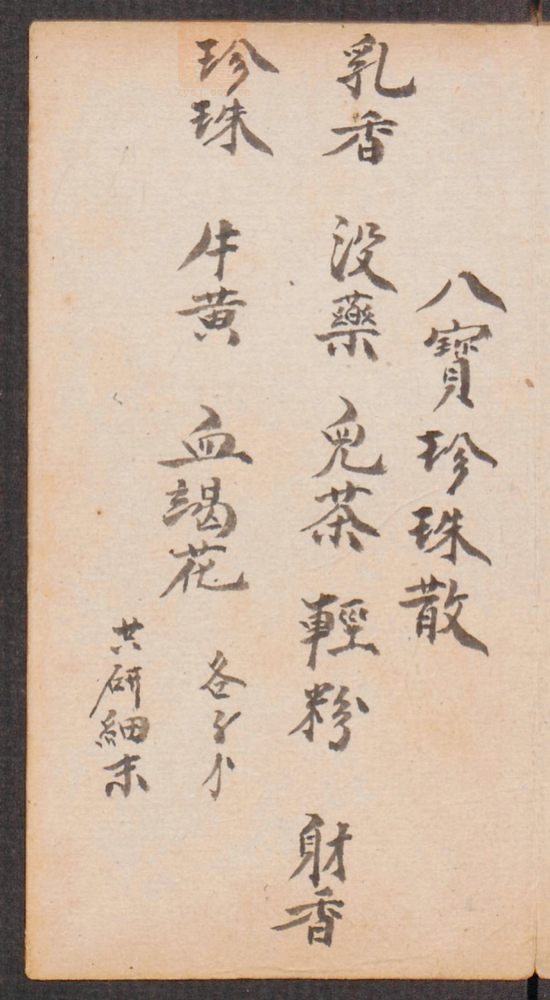 八寶珍珠散
乳香 没藥 児茶 輕粉 射香
珍珠 牛黄 血竭花 各
共研細末